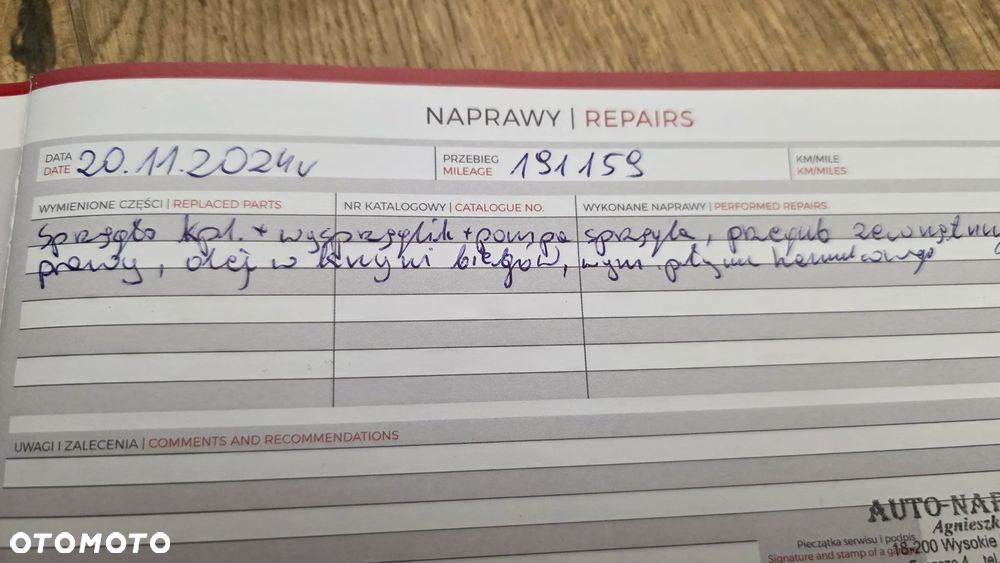 NAPRAWY | REPAIRS
DATA 20.11.2024r PRZEBIEG 191159 KM/MILE
DATE MILEAGE KM/MILES
WYMIENIONE CZĘŚCI | REPLACED PARTS NR KATALOGOWY | CATALOGUE NO. WYKONANE NAPRAWY | PERFORMED REPAIRS
Sprzęgło kpl. + wysprzęglik + pompa sprzęgła, przegub zewnętrzn
prawy, olej w skrzyni biegów, wym. płynu hamulcowego
UWAGI I ZALECENIA | COMMENTS AND RECOMMENDATIONS
AUTO-NAP
Agnieszk
Pieczątka serwisu i podpis
18-200 Wysokie
Signature and stamp of a
OTOMOTO